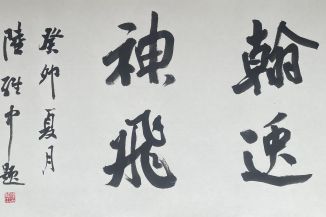 翰逸
神飛
癸卯夏月
陸維中題